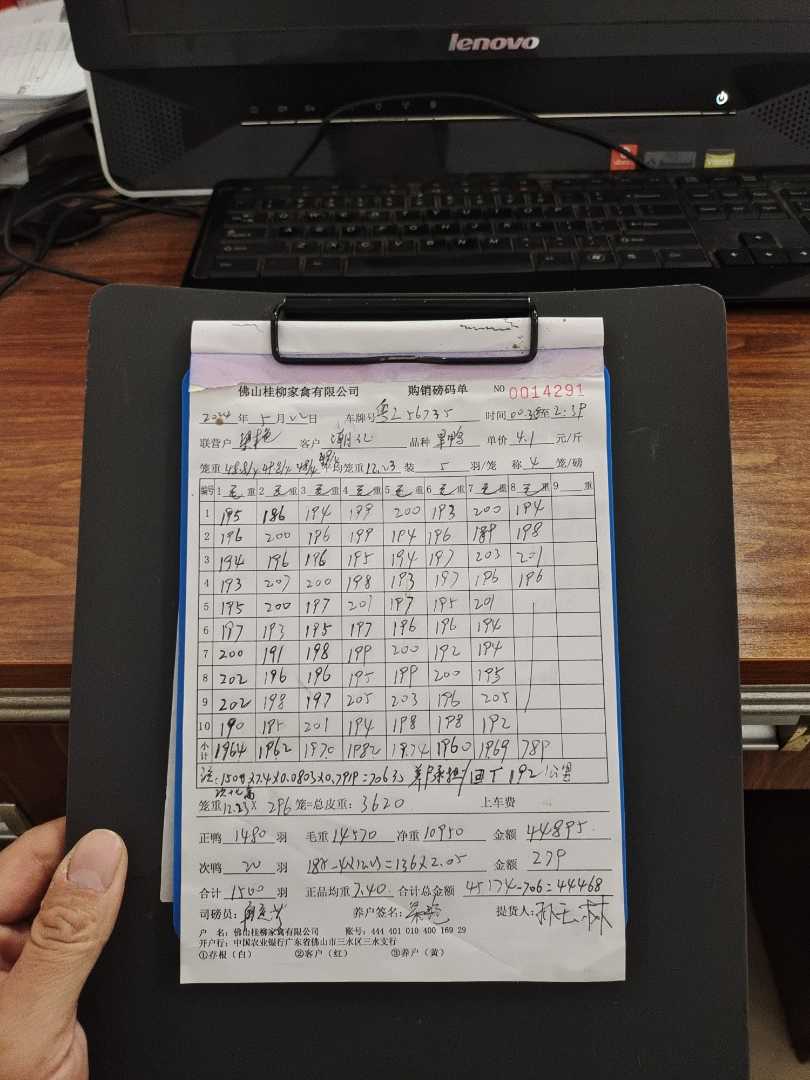 lenovo
佛山桂柳家禽有限公司 购销磅码单 NO 0014291
2024年5月22日 车牌号 粤Z56735 时间00:38至2:39
联营户 客户 潮记 品种 单价 4.1 元/斤
笼重 均笼重12.23 装 5 羽/笼 称 4 笼/磅
编号 1 毛重 2 毛重 3 毛重 4 毛重 5 毛重 6 毛重 7 毛重 8 毛重 9 重
1 195 186 194 199 200 193 200 194
2 196 200 196 199 194 196 189 198
3 194 196 196 195 194 197 203 201
4 193 207 200 198 193 197 196 196
5 195 200 197 201 197 195 201
6 197 193 195 197 196 196 194
7 200 191 198 199 200 192 194
8 202 196 196 195 199 200 195
9 202 198 197 205 203 196 205
10 190 195 201 194 198 198 192
小计 1964 1962 1970 1982 1974 1960 1969 789
注:1500×7.4×0.0803×0.7919=706元 养户承担/回丁 192 公里
笼重12.23× 296 笼=总皮重: 3620 上车费
正鸭 1480 羽 毛重 14570 净重 10950 金额 44895
次鸭 20 羽 185-4×12.23=136×2.05 金额 279
合计 1500 羽 正品均重 7.40 合计总金额 45174-706=44468
司磅员: 养户签名: 提货人:
户 名:佛山桂柳家禽有限公司 账号:444 401 010 400 169 29
开户行:中国农业银行广东省佛山市三水区三水支行
①存根(白) ②客户(红) ③养户(黄)